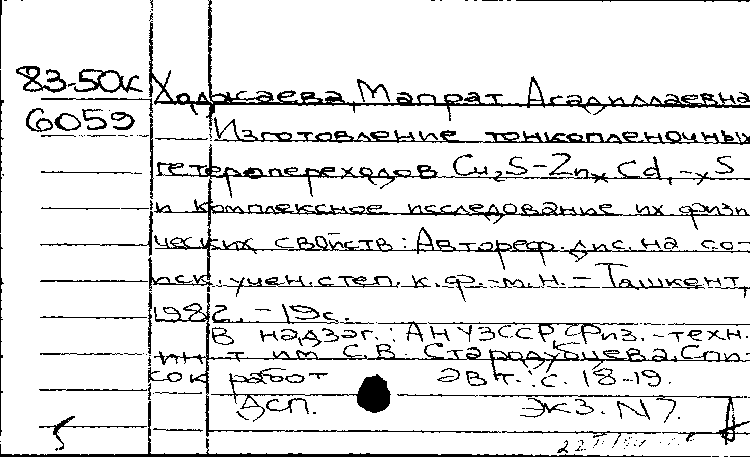 83-50к
6059
Ходжаева, Мапрат Асадиллаевна
Изготовление тонкопленочных
гетеропереходов Cu₂S-ZnₓCd₁₋ₓS
и комплексное исследование их физи
ческих свойств: Автореф. дис. на со-
иск. учен. степ. к. ф.-м. н. - Ташкент,
1982. - 19с.
В надзаг.: АН УзССР, Физ.-техн.
ин-т им С.В. Стародубцева. Спи-
сок работ авт.: с. 18-19.
ДСП. Экз. N 7.
5